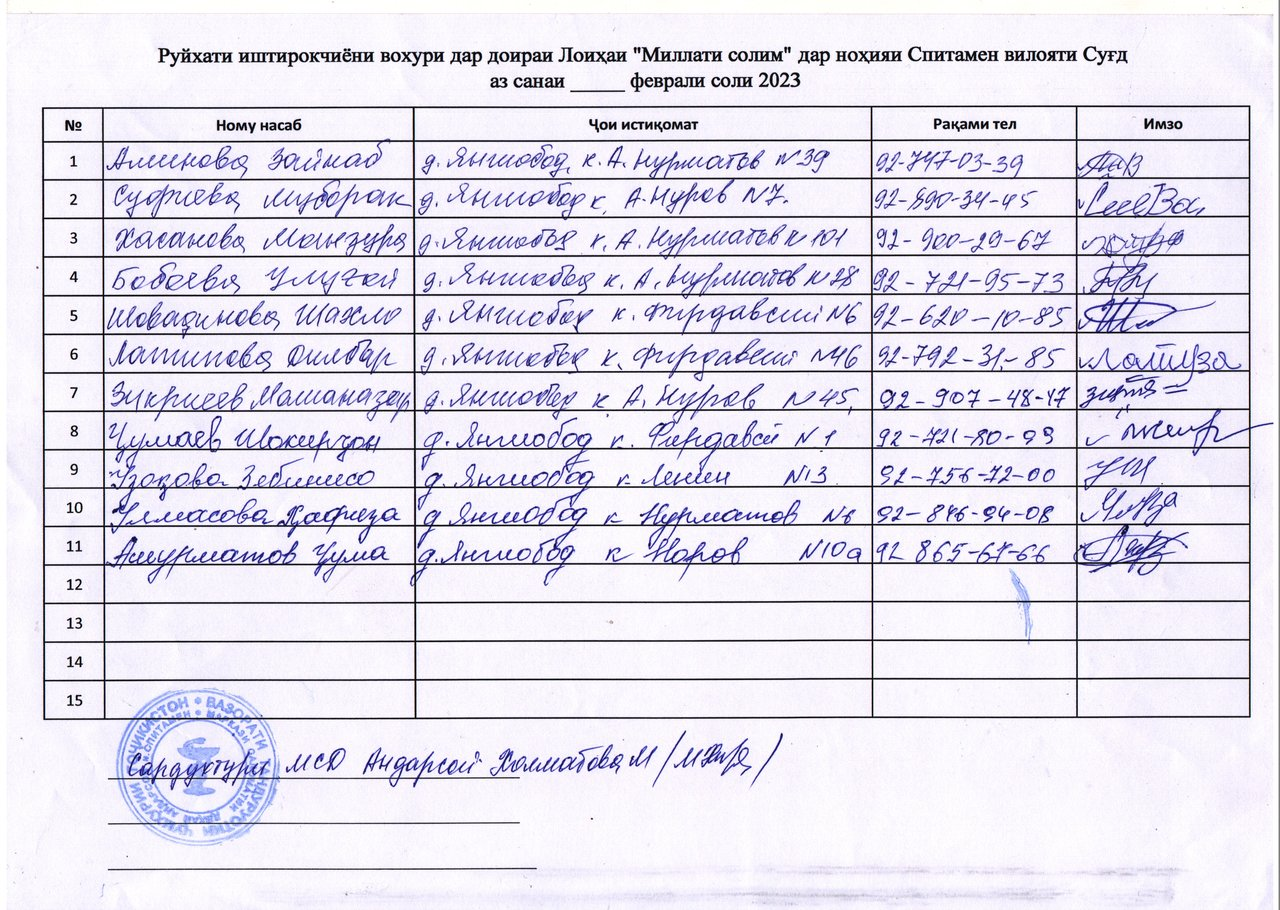 Руйхати иштирокчиёни вохури дар доираи Лоиҳаи "Миллати солим" дар ноҳияи Спитамен вилояти Суғд
аз санаи _____ феврали соли 2023
№ Ному насаб Ҷои истиқомат Рақами тел Имзо
1 Аминова Зайнаб д. Янгиобод, к. А. Нурматов №39 92-747-03-39
2 Суфиева Муборак д. Янгиобод к. А. Нуров №7. 92-890-34-45
3 Хасанова Манзура д. Янгиобод к. А. Нурматов №101 92-900-29-67
4 Бобоева д. Янгиобод к. А. Нурматов №28 92-721-95-73
5 Шахло д. Янгиобод к. Фирдавсий №6 92-620-10-85
6 Латипова Дилбар д. Янгиобод к. Фирдавсий №46 92-792-31-85
7 Зикриеев д. Янгиобод к. А. Нуров №45, 92-907-48-47
8 Ҷумаев Шокирҷон д. Янгиобод к. Фирдавсӣ №1 92-721-80-99
9 Ӯзоқова Зебинисо д. Янгиобод к Ленин №13 92-756-72-00
10 Улмасова Ҳафиза д Янгиобод к Нурматов №6 92-846-94-08
11 Ашурматов Ҷума д. Янгиобод к Норов №10а 92 865-67-66
12
13
14
15
Сардухтури МСД Андарсой Холматова М